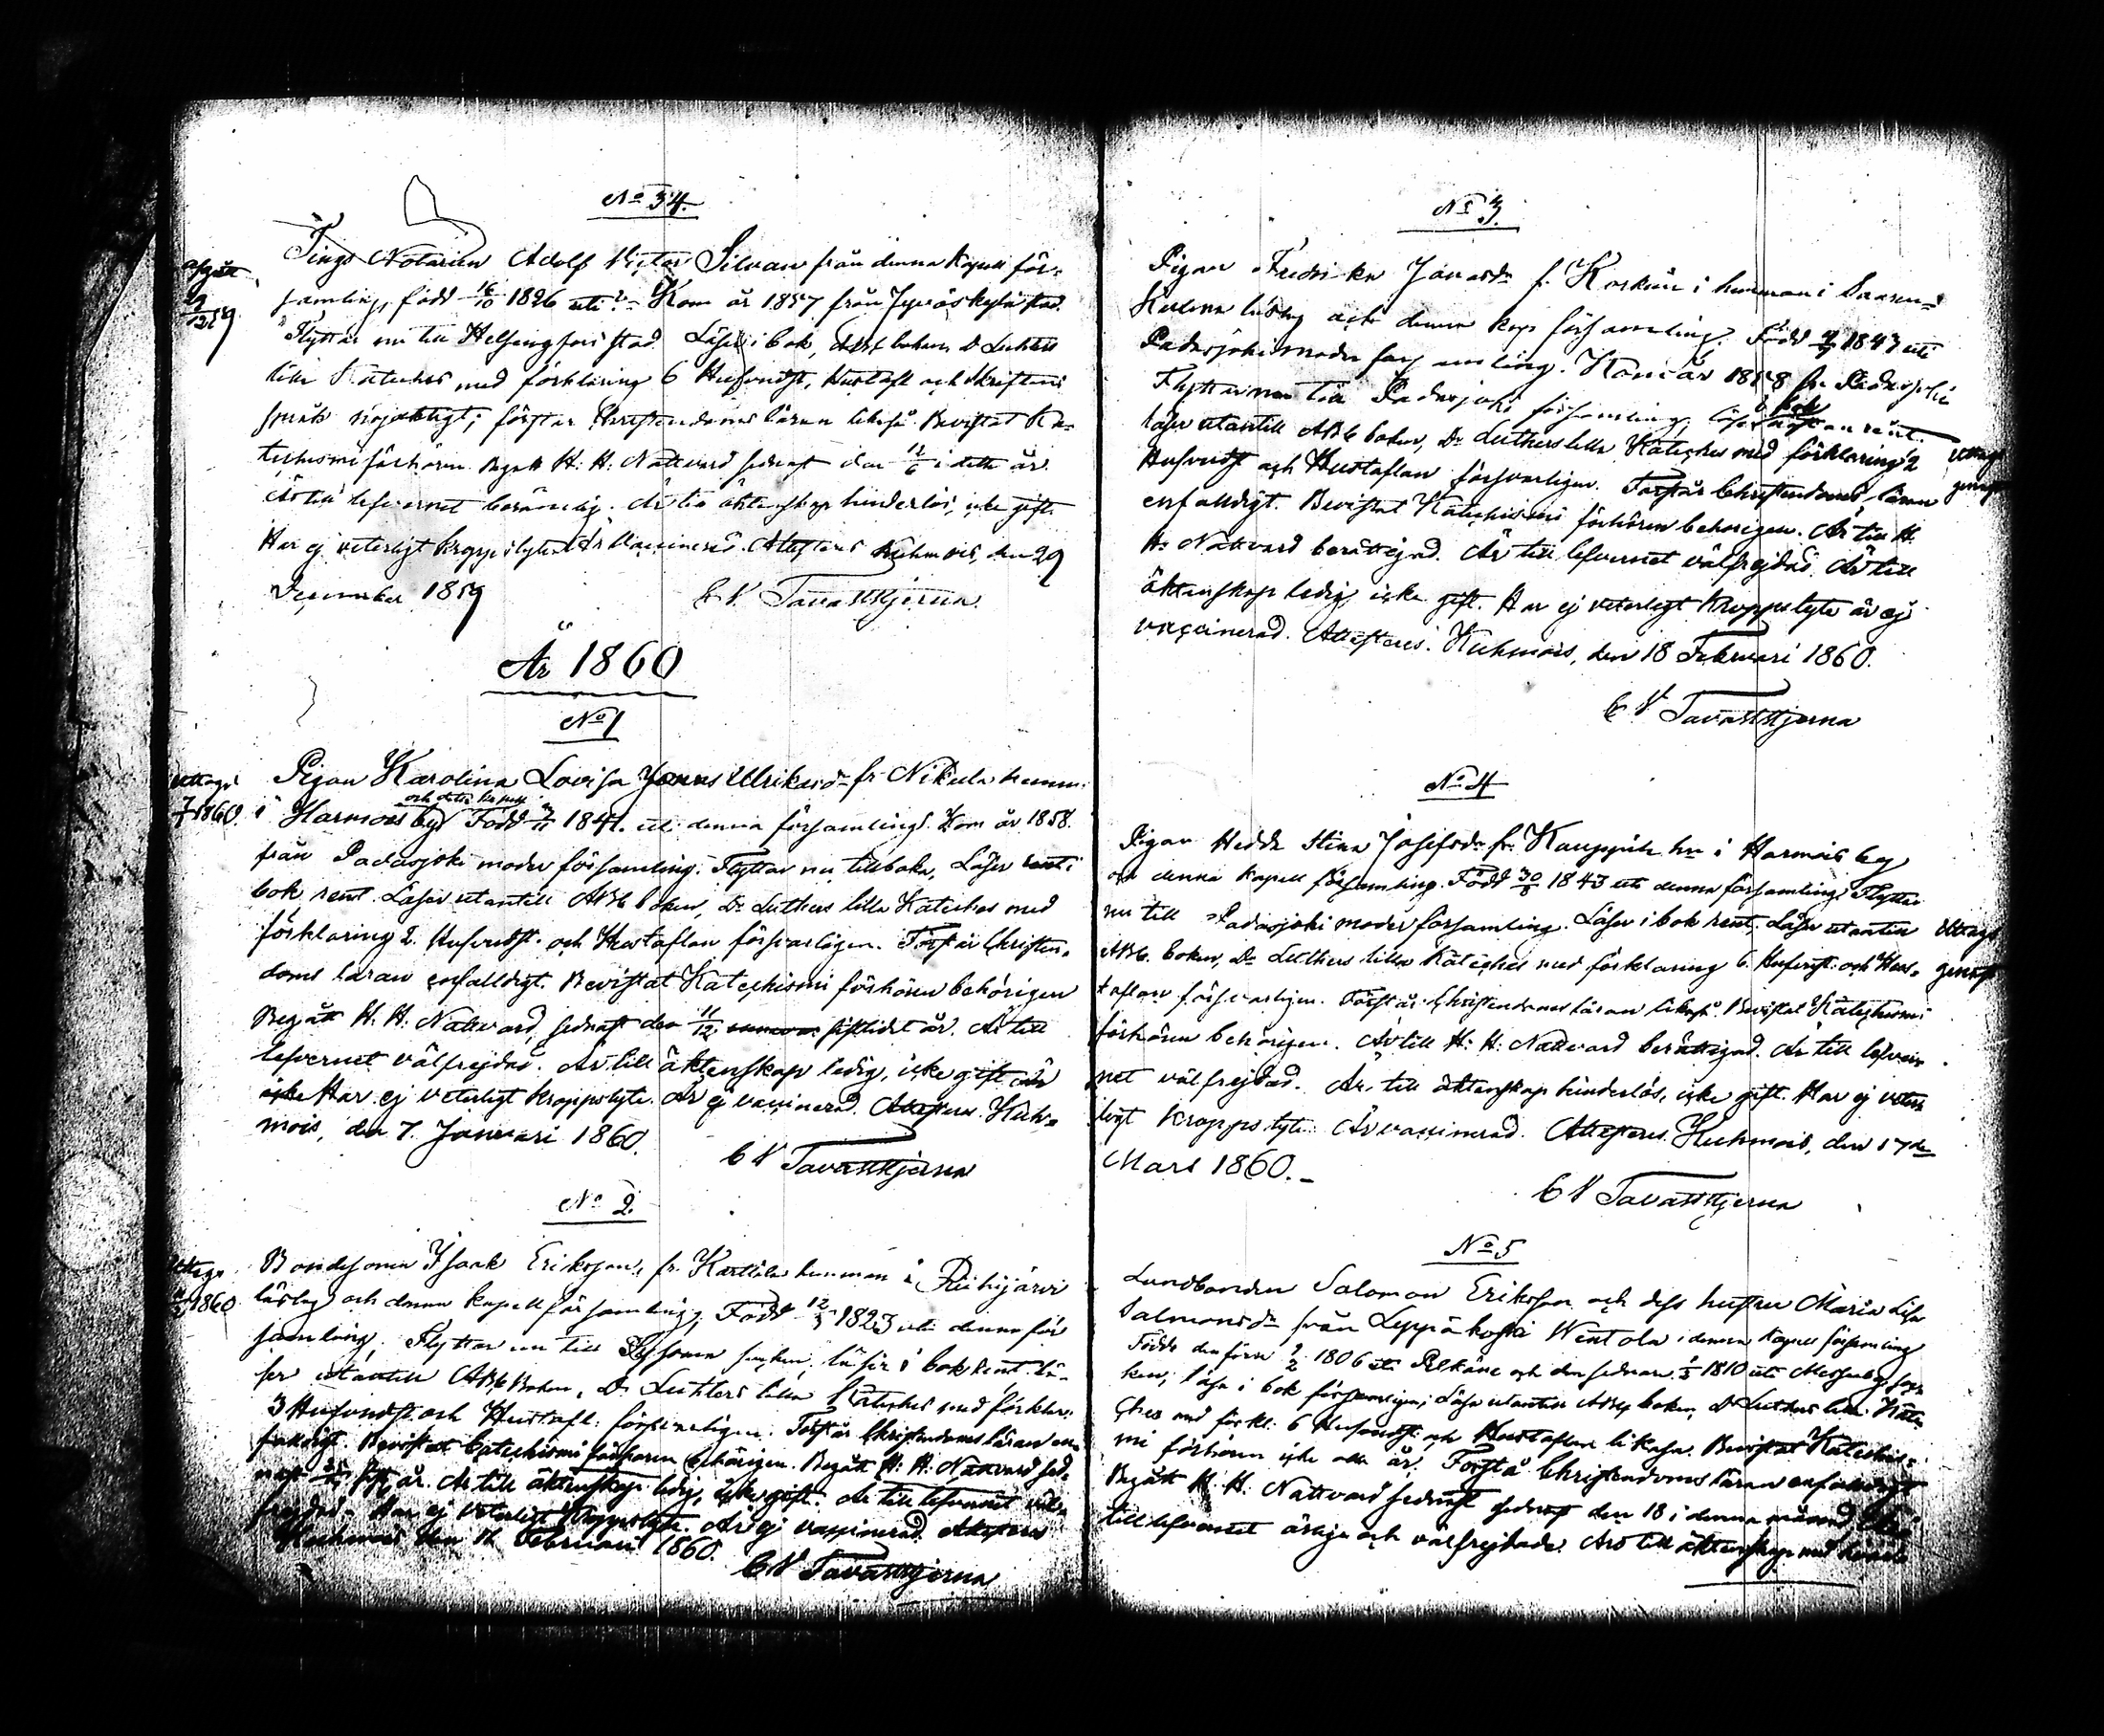 No 34.
Tings Notarien Adolf Victor Silvan från denna Kapell för-
samling, född 16/10 1826 uti ? Kom år 1857 från Jyväskylä stad.
Flyttar nu till Helsingfors stad. Läser i bok, ABC boken D Luthers
lilla Kateches med förklaring 6 Hufvudst, Hustafl och skriftens
språk nöjaktigt; förstår Christendoms läran likaså. Bevistat Ka-
techismi förhören. Begått H. H. Nattvard sednast den i detta år.
Är till lefvernet berömlig. Är till äktenskap hinderlös, icke gift.
Har ej veterligt kroppslyte. Är vaccinerad. Attesteras Kuhmois, den 29
December 1859
C V Tavaststjerna
Afgått
29/12 59
År 1860
No 1
Pigan Karolina Lovisa Ulriksdr fr Nikula hemm:
i Harmois by och detta Kapell Född 1841. uti denna församling. Kom år 1858.
från Padasjoki moder församling. Flyttar nu tillbaka, Läser
bok rent. Läser utantill ABC boken, Dr Luthers lilla Kateches med
förklaring 2. Hufvudst. och Hustaflan försvarligen. Förstår Christen-
doms läran enfalldigt. Bevistat Katechismi förhören behörigen
Begått H. H. Nattvard, sednast den 11/12 sistlidet år. Är till
lefvernet välfrejdad. Är till äktenskap ledig, icke gift
Har ej veterligt kroppslyte. Är ej vaccinerad. Attesteras. Kuh-
mois, den 7. Januari 1860.
C V Tavaststjerna
Uttagit
7/1 1860.
No 2.
Bondesonen Isaak Eriksson, fr. Karttila hemman i Riihijärvi
läslag och denna Kapell församling, Född 12/3 1823 uti denna för
samling, Flyttar nu till Sysmä socken, läser i bok rent. Lä-
ser utantill ABC Boken, Dr Luthers lilla Kateches med förklar:
3 Hufvudst. och Hustafl: försvarligen. Förstår Christendoms läran en-
falldigt. Bevistat Catechismi förhören behörigen. Begått H. H. Nattvard sed-
nast år. Är till äktenskap ledig, icke gift. Är till lefvernet väl-
frejdad. Har ej veterligt Kroppslyte. Är ej vaccinerad. Attesteras
Kuhmois den Februari 1860.
C V Tavaststjerna
Uttagit
1860
No 3.
Pigan Fredrika Jonasdr f. Koskue i hemman i
läslag och denna kap församling. Född 1847 uti
Padasjoki moder församling. Kom år 1858 fr. Padasjoki
Flyttar nu till Padasjoki församling, läser i bok rent.
läser utantill ABC boken, Dr Luthers lilla Kateches med förklaring 2
Hufvudst och Hustaflan försvarligen. Förstår Christendoms läran
enfalldigt. Bevistat Katechismi förhören behörigen. Är till H.
H. Nattvard berättigad. Är till lefvernet välfrejdad. Är till
äktenskap ledig icke gift. Har ej veterligt kroppslyte är ej
vaccinerad. Attesteras. Kuhmois, den 18 Februari 1860.
C V Tavaststjerna
No 4
Pigan Hedda Stina Josefsdr fr. Kauppila hn i Harmois by
och denna Kapell församling. Född 30/ 1843 uti denna församling Flyttar
nu till Padasjoki moder församling. Läser i bok rent. Läser utantill
ABC. boken, Dr Luthers lilla Kateches med förklaring 6. Hufvudst. och Hus-
taflan försvarligen. Förstår Christendoms läran likaså. Bevistat Katechismi
förhören behörigen. Är till H. H. Nattvard berättigad. Är till lefver-
net välfrejdad. Är till äktenskap hinderlös, icke gift. Har ej veter
ligt Kroppslyte. Är vaccinerad. Attesteras. Kuhmois, den 17de
Mars 1860.
C V Tavaststjerna
No 5
Landbonden Salomon Eriksson och dess hustru Maria Lisa
Salmonsdr från Leppäkoski Wentola i denna Kapell församling
Födde den förra 1806 uti Pelkäne och den sednare 1810 uti Messuby soc-
ken, läsa i bok försvarligen; Läsa utantill ABC boken, Dr Luthers lilla Kate-
ches med förkl: 6 Hufvudst och Hustaflan likaså. Bevistat Katechis-
mi förhören icke alla år. Förstå Christendoms läran enfalldigt
Begått H. H. Nattvard sednast den 18 i denna månad
till lefvernet ärliga och välfrejdade. Äro till äktenskap med